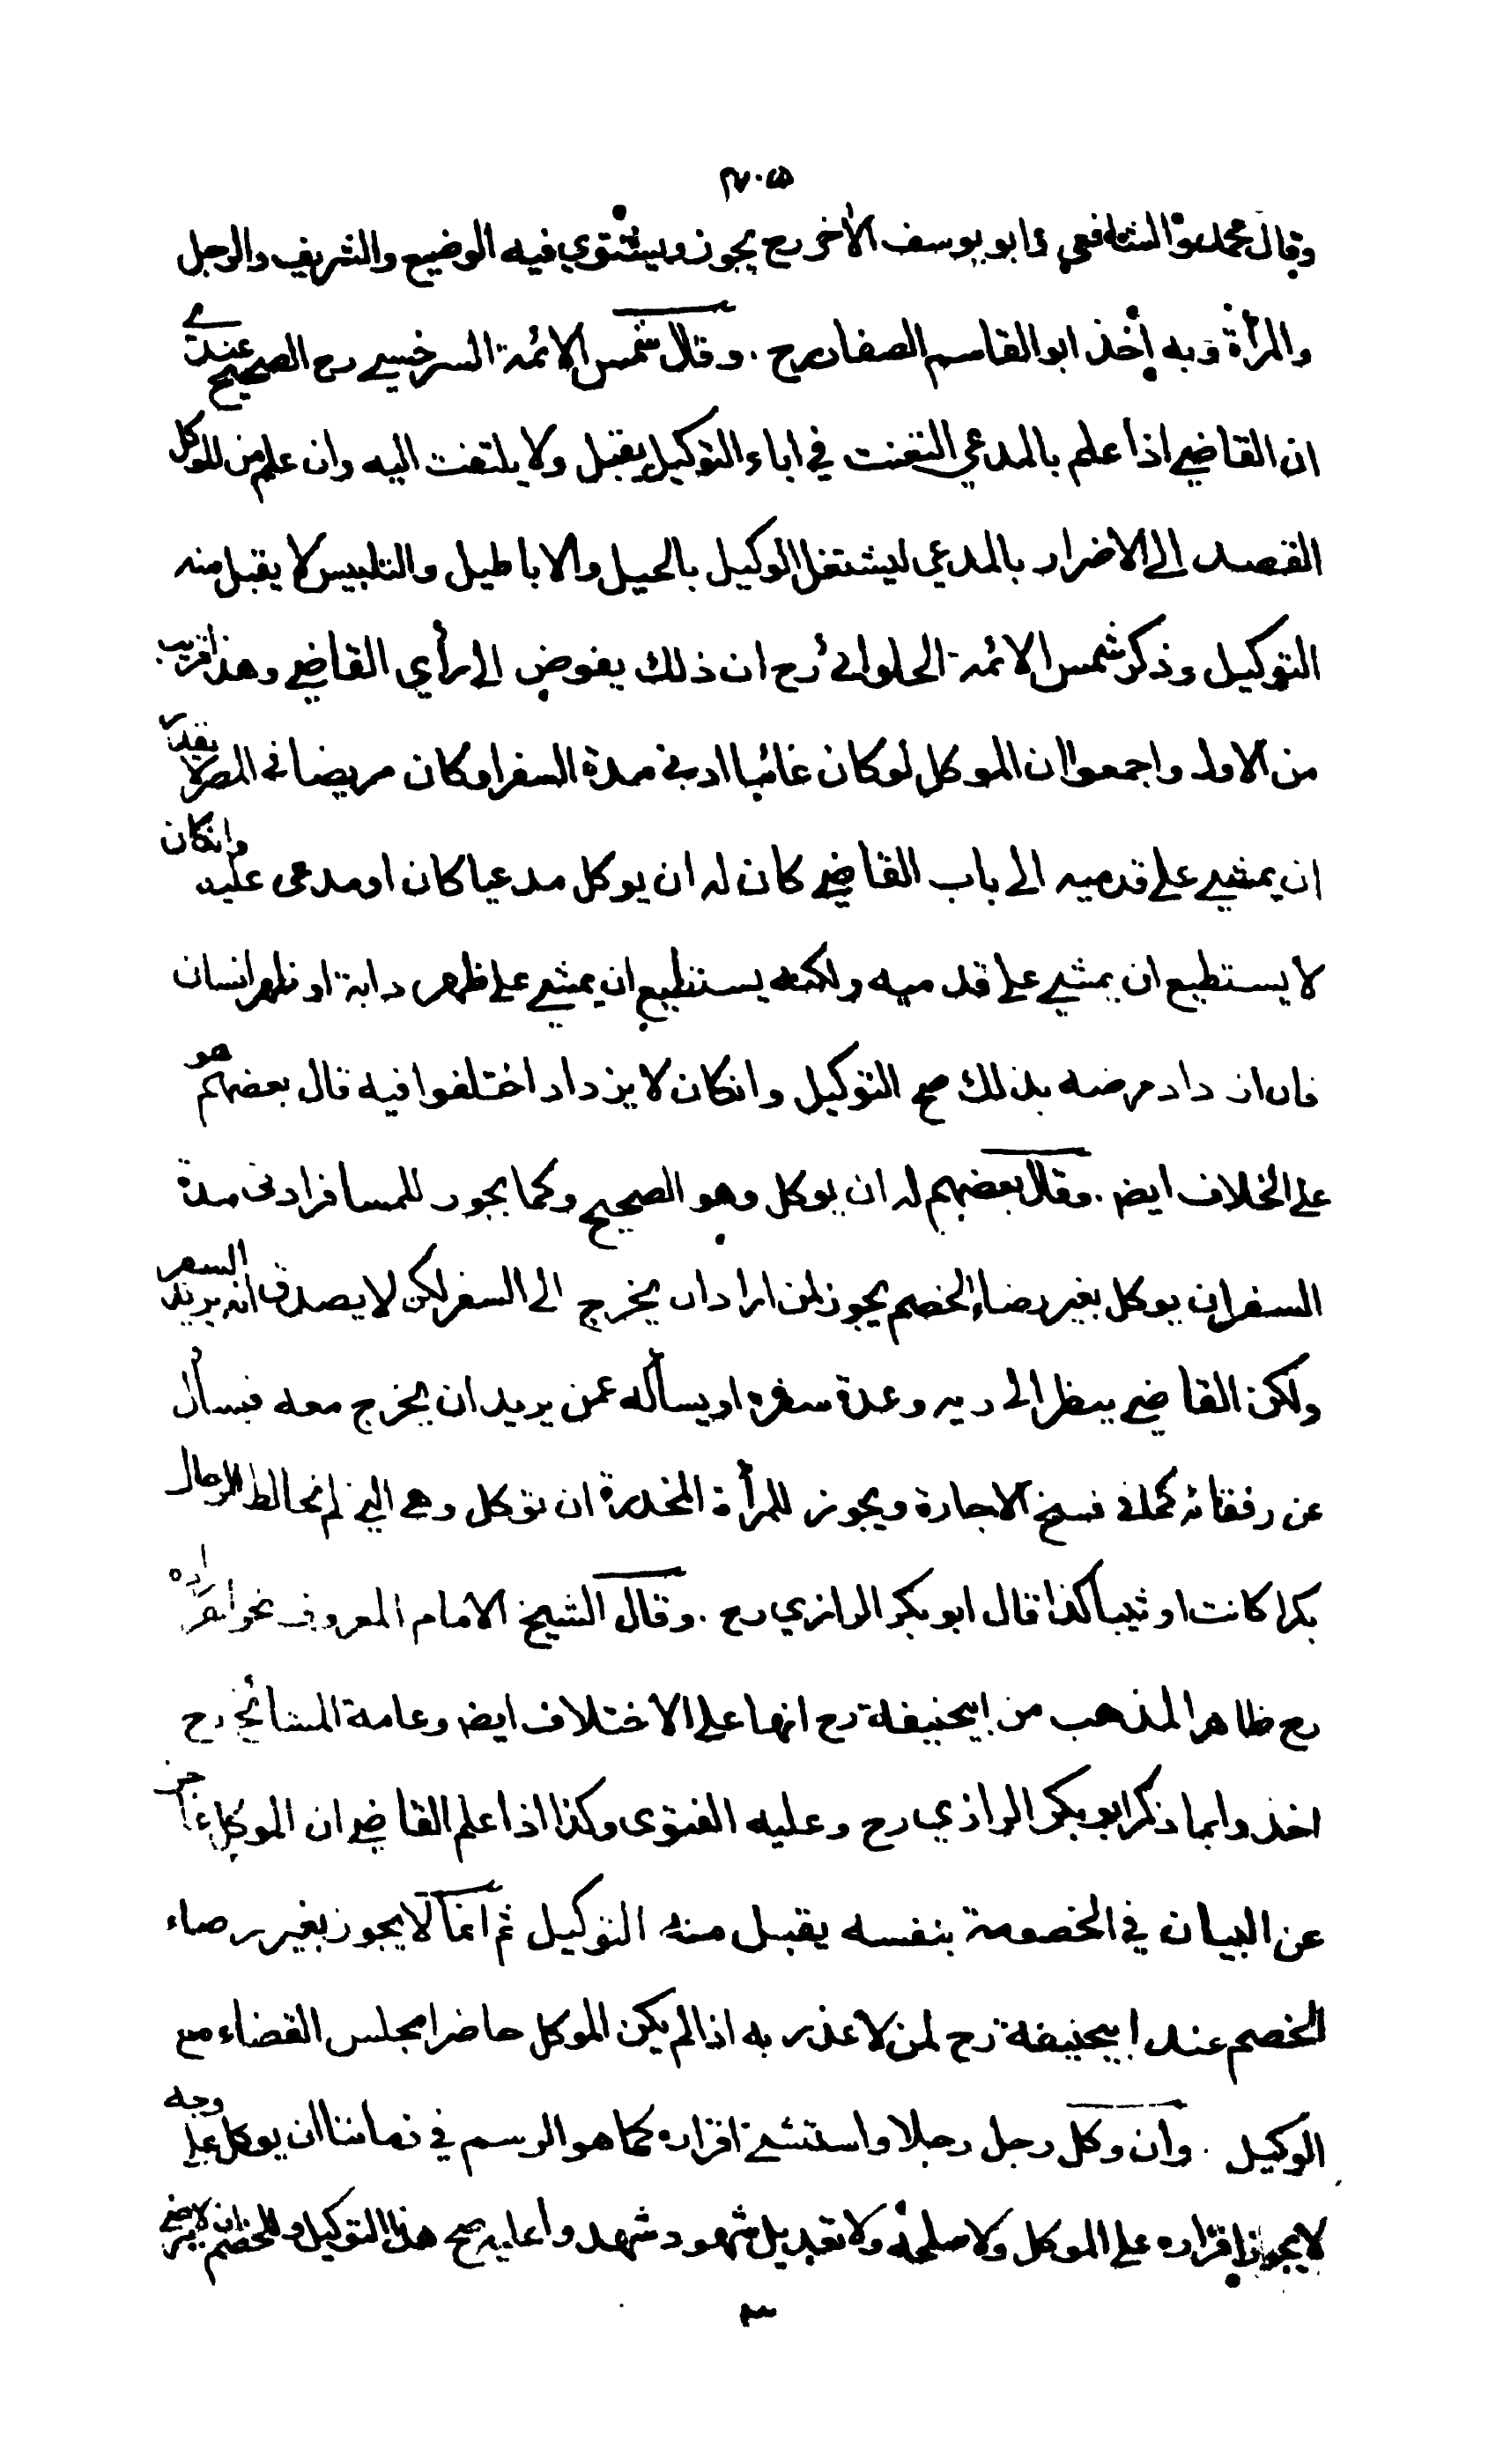 وقال محمد والشافعي وابو يوسف الاخر رح يجوز ويستوي فيه الوضيع والشريف والرجل
والمرأة وبه أخذ ابو القاسم الصفار رح . وقال شمس الائمة السرخسي رح الصحيح عندي
ان القاضي اذا علم بالمدعي التعنت في اباء التوكيل يقبل ولا يلتفت اليه وان علم من الموكل
القصد الى الاضرار بالمدعي ليشتغل الوكيل بالحيل والاباطيل والتلبيس لا يقبل منه
التوكيل وذكر شمس الائمة الحلوائي رح ان ذلك يفوض الى رأي القاضي وهذا قريب
من الاول واجمعوا ان الموكل لو كان غائبا ادنى مدة السفر او كان مريضا في المصر لا يقدر
ان يمشي على قدميه الى باب القاضي كان له ان يوكل مدعيا كان او مدعى عليه وانكان
لا يستطيع ان يمشي على قدميه ولكنه يستطيع ان يمشي على ظهر دابة او ظهر انسان
فان ازداد مرضه بذلك صح التوكيل وانكان لا يزداد اختلفوا فيه قال بعضهم هو
على الخلاف ايض . وقال بعضهم له ان يوكل وهو الصحيح وكما يجوز للمسافر ادنى مدة
السفر ان يوكل بغير رضاء الخصم يجوز لمن اراد ان يخرج الى السفر لكن لا يصدق انه يريد السفر
ولكن القاضي ينظر الى زيه وعدة سفره او يسأله عمن يريد ان يخرج معه فيسأل
عن رفقائه كما في فسخ الاجارة ويجوز للمرأة المخدرة ان توكل وهي التي لم تخالط الرجال
بكرا كانت او ثيبا كذا قال ابو بكر الرازي رح . وقال الشيخ الامام المعروف بخواهر زاده
رح ظاهر المذهب من ابيحنيفة رح انها على الاختلاف ايض وعامة المشائخ رح
اخذوا بما ذكر ابو بكر الرازي رح وعليه الفتوى وكذا اذا علم القاضي ان الموكل عاجز
عن البيان في الخصومة بنفسه يقبل منه التوكيل ثم انما لا يجوز بغير رضاء
الخصم عند ابيحنيفة رح لمن لا عذر به اذا لم يكن الموكل حاضرا مجلس القضاء مع
الوكيل . وان وكل رجل رجلا واستثنى اقراره كما هو الرسم في زماننا ان يوكل على وجه
لا يجوز اقراره على الموكل ولا صلحه ولا تعديل شهود شهدوا عليه صح هذا التوكيل وللخصم ان لا يرضى